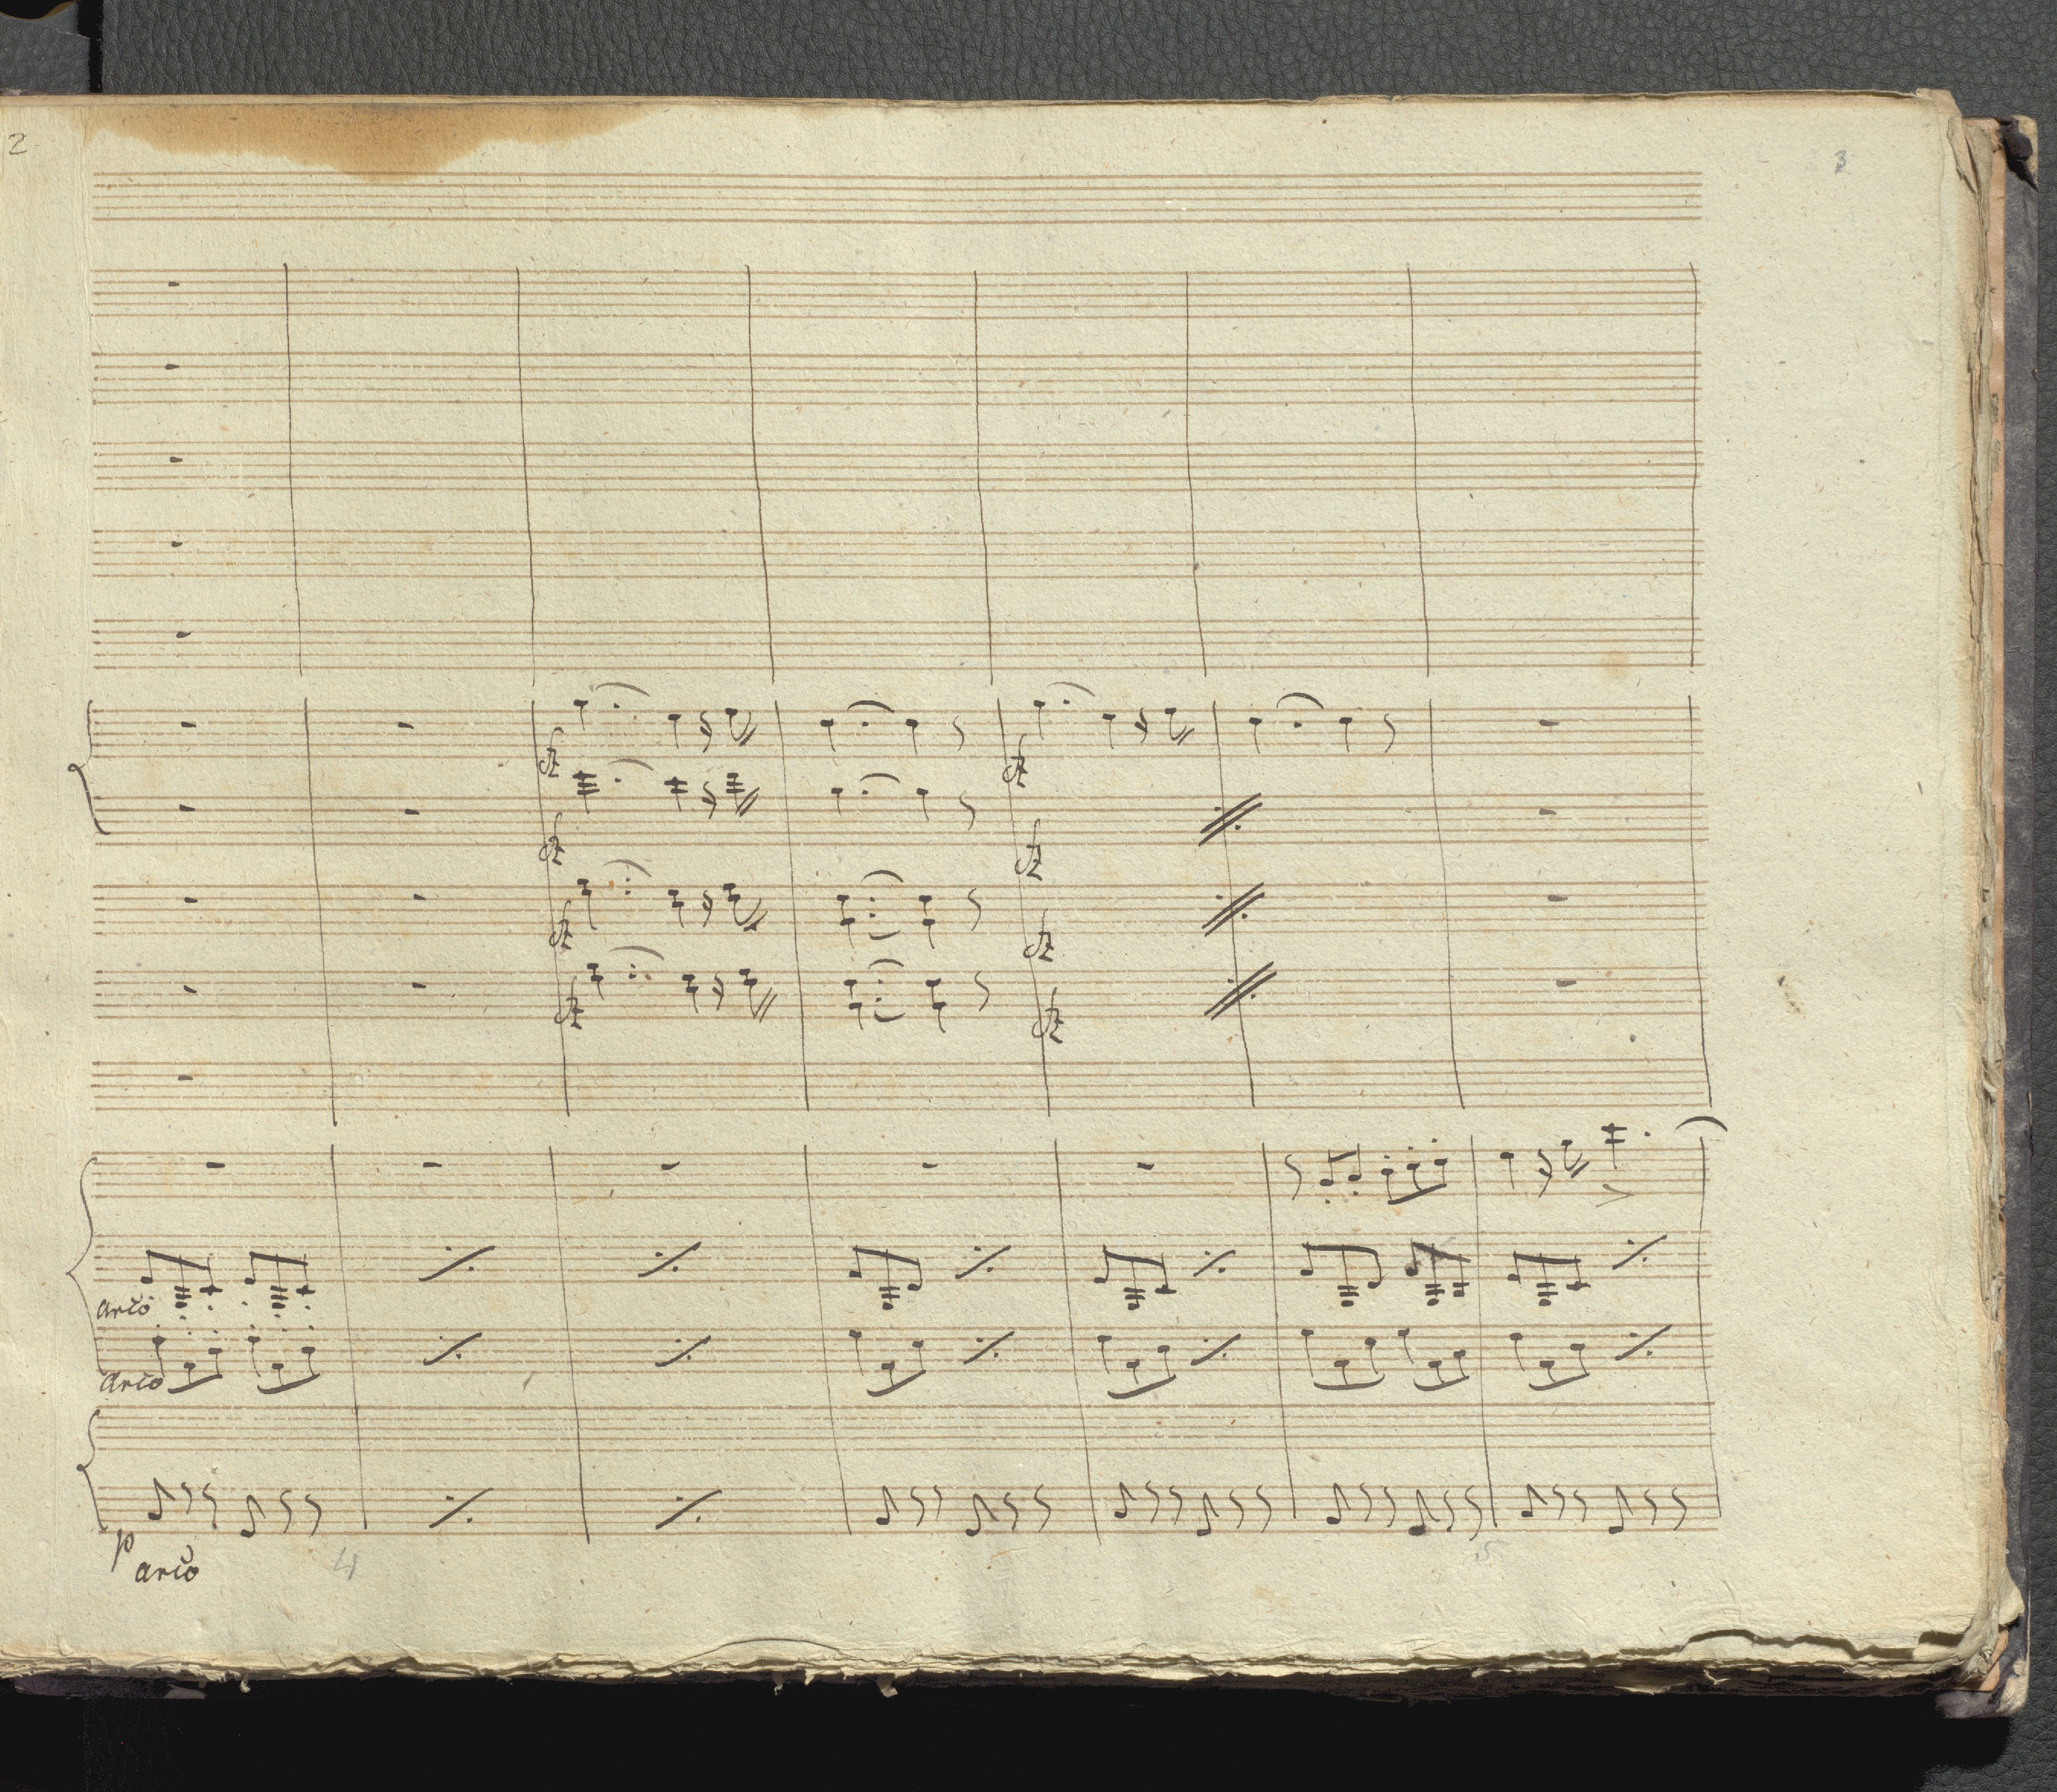 2
3
fz
fz
fz
fz
fz
fz
fz
fz
arco
arco
p
arco
4
5